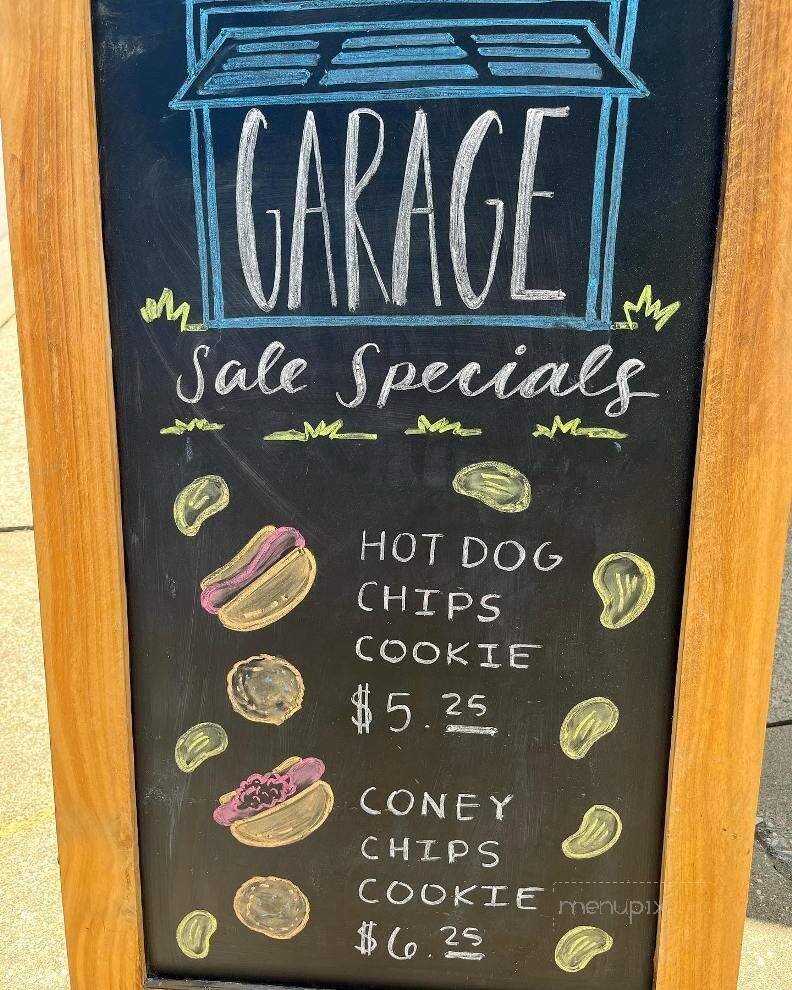 GARAGE
Sale Specials
HOT DOG
CHIPS
COOKIE
$5.25
CONEY
CHIPS
COOKIE
$6.25
menupix